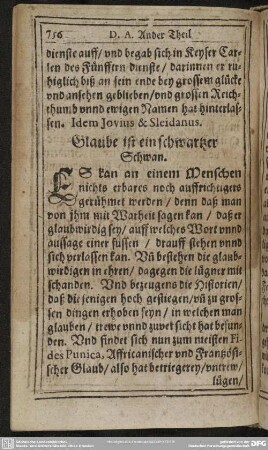 756 D. A. Ander Theil
dienste auff/ vnd begab sich in Keyser Car-
len des Fünfften dienste/ darinnen er ru-
higlich biß an sein ende bey grossem glücke
vnd ansehen geblieben/ vnd grossen Reich-
thumb vnnd ewigen Namen hat hinterlas-
sen. Idem Jovius & Sleidanus.
Glaube ist ein schwartzer
Schwan.
ES kan an einem Menschen
nichts erbares noch auffrichtigers
gerühmet werden/ denn daß man
von jhm mit Warheit sagen kan/ daß er
glaubwirdig sey/ auff welches Wort vnnd
aussage einer füssen/ drauff stehen vnnd
sich verlossen kan. Vñ bestehen die glaub-
wirdigen in ehren/ dagegen die lügner mit
schanden. Vnd bezeugens die Historien/
daß die jenigen hoch gestiegen/ vñ zu gros-
sen dingen erhoben seyn/ in welchen man
glauben/ trewe vnnd zuversicht hat befun-
den. Vnd findet sich nun zum meisten Fi-
des Punica, Affricanischer vnd Frantzösi-
scher Glaub/ also hat betriegerey/ vntrew/
lügen/